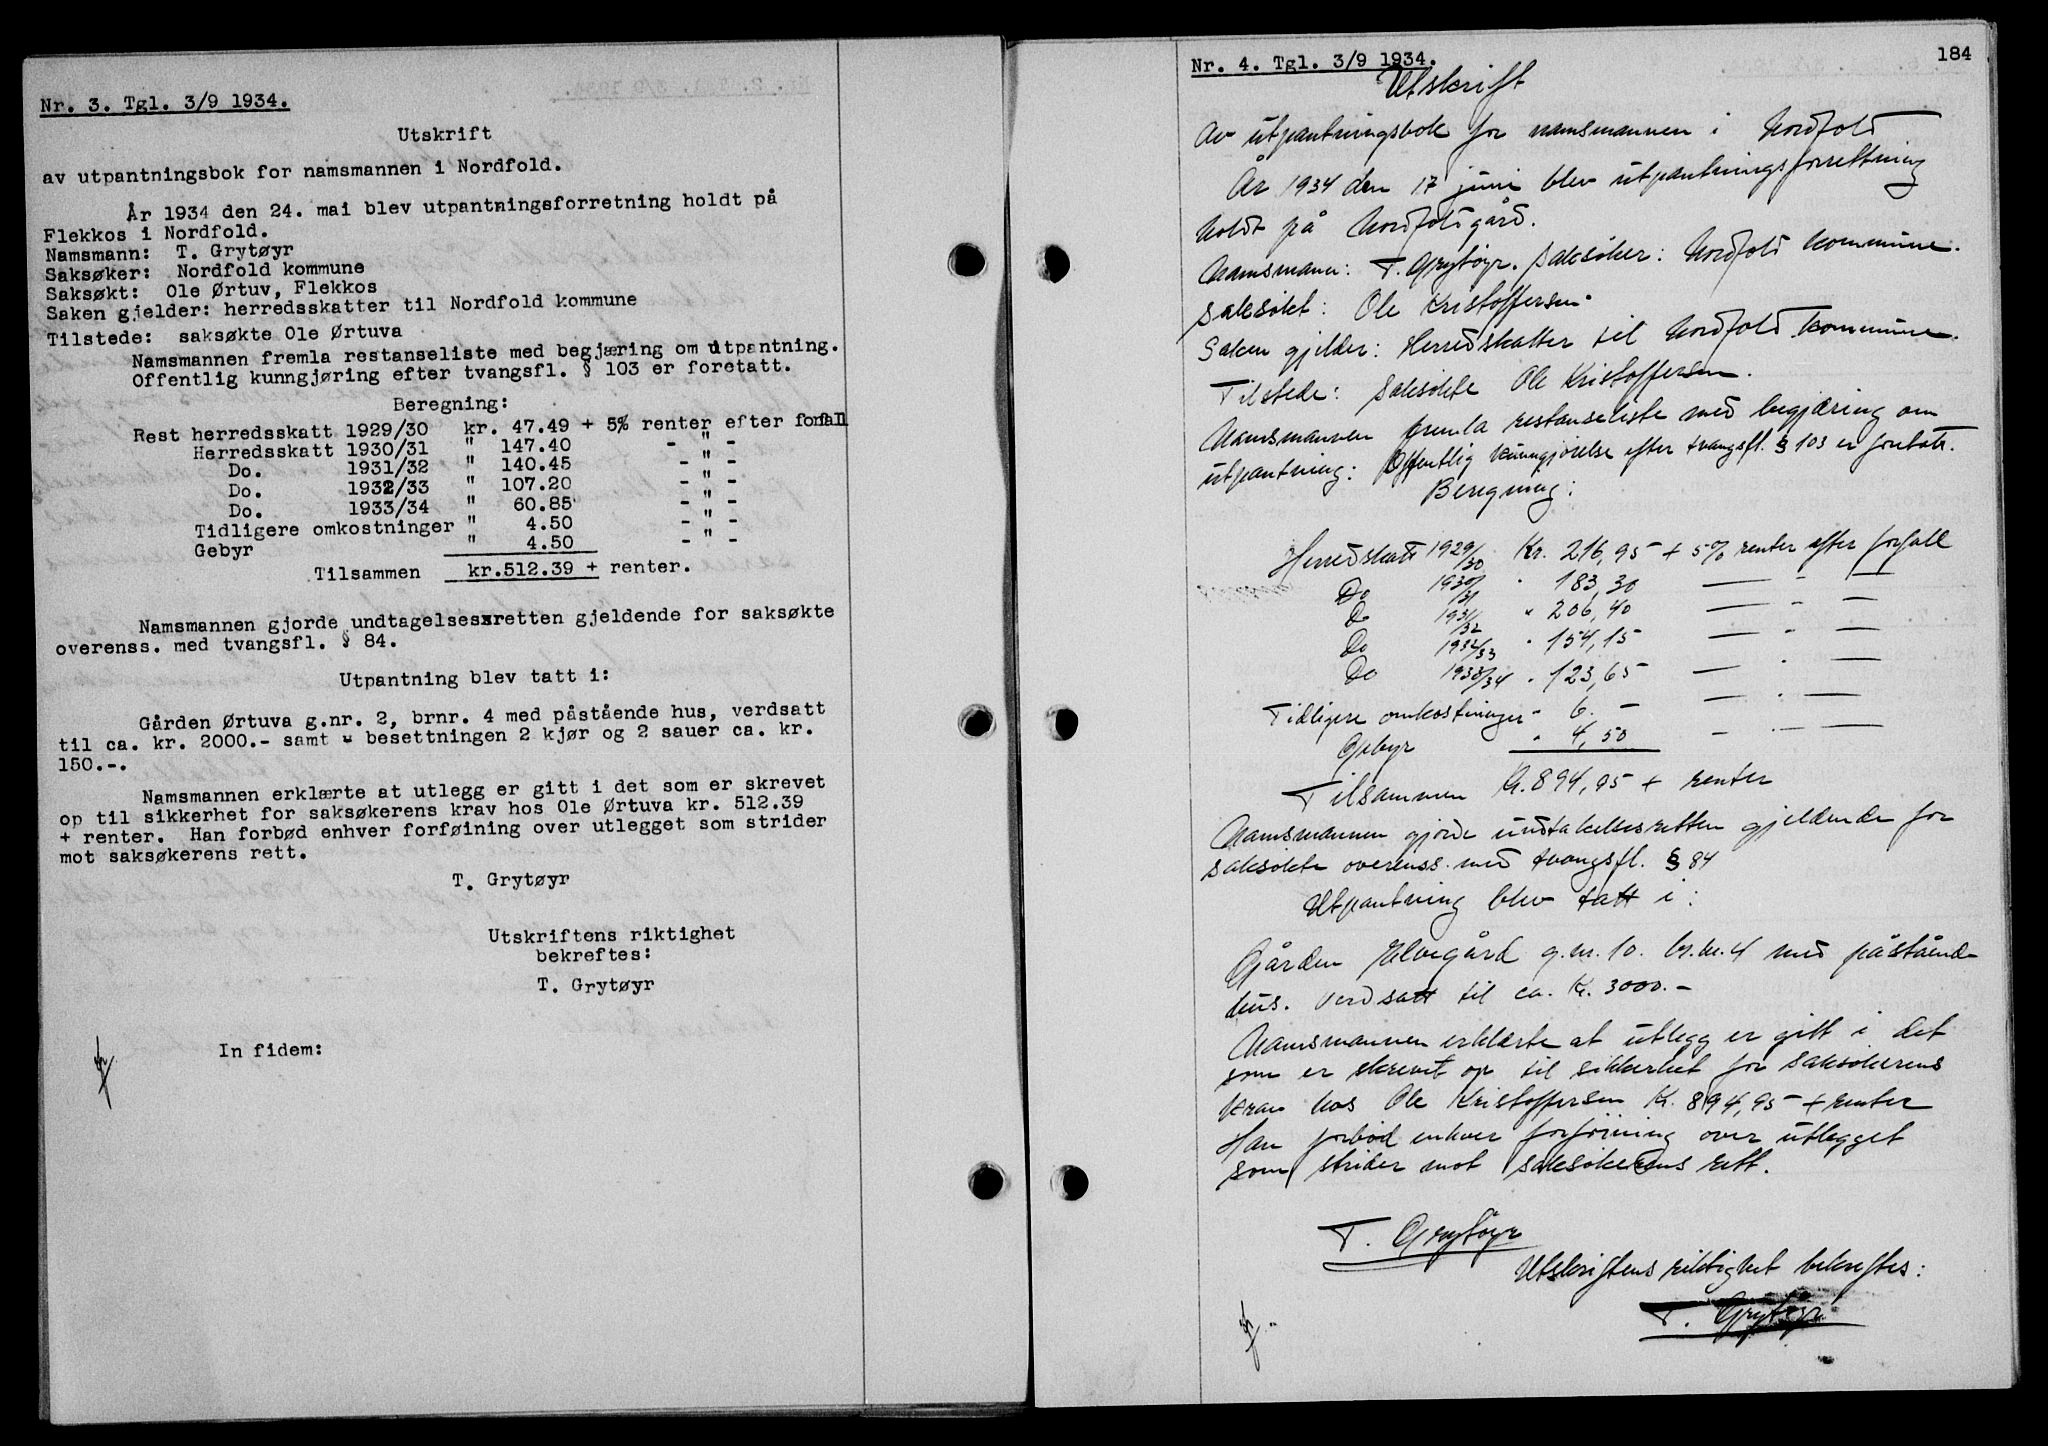 Nr. 3. Tgl. 3/9 1934.
Utskrift
av utpantningsbok for namsmannen i Nordfold.
År 1934 den 24. mai blev utpantningsforretning holdt på
Flekkos i Nordfold.
Namsmann: T. Grytøyr
Saksøker: Nordfold kommune
Saksøkt: Ole Ørtuv, Flekkos
Saken gjelder: herredsskatter til Nordfold kommune
Tilstede: saksøkte Ole Ørtuva
Namsmannen fremla restanseliste med begjæring om utpantning.
Offentlig kunngjøring efter tvangsfl. § 103 er foretatt.
Beregning:
Rest herredsskatt 1929/30 kr. 47.49 + 5% renter efter forfall
Herredsskatt 1930/31 " 147.40 - " -
Do. 1931/32 " 140.45 - " -
Do. 1932/33 " 107.20 - " -
Do. 1933/34 " 60.85 - " -
Tidligere omkostninger " 4.50 - " -
Gebyr " 4.50 - " -
Tilsammen kr.512.39 + renter.
Namsmannen gjorde undtagelsesxretten gjeldende for saksøkte
overenss. med tvangsfl. § 84.
Utpantning blev tatt i:
Gården Ørtuva g.nr. 2, brnr. 4 med påstående hus, verdsatt
til ca. kr. 2000.- samt besettningen 2 kjør og 2 sauer ca. kr.
150.-.
Namsmannen erklærte at utlegg er gitt i det som er skrevet
op til sikkerhet for saksøkerens krav hos Ole Ørtuva kr. 512.39
+ renter. Han forbød enhver forføining over utlegget som strider
mot saksøkerens rett.
T. Grytøyr
Utskriftens riktighet
bekreftes:
T. Grytøyr
In fidem:
184
Nr. 4. Tgl. 3/9 1934.
Utskrift
Av utpantningsbok for namsmannen i Nordfold
År 1934 den 17 juni blev utpantningsforrettning
holdt på Nordfoldgård.
Namsmann: T. Grytøyr. Saksöker: Nordfold kommune.
Saksökt: Ole Kristoffersen.
Saken gjelder: Herredskatter til Nordfold kommune.
Tilstede: Saksökte Ole Kristoffersen.
Namsmannen fremla restanseliste med begjæring om
utpantning: Offentlig kunngjörelse efter tvangsfl. § 103 er foretatt.
Beregning:
Herredskatt 1929/30 Kr. 216,95 + 5% renter efter forfall
Do 1930/31 " 183,30 — " —
Do 1931/32 " 206,40 — " —
Do 1932/33 " 154,15 — " —
Do 1933/34 " 123,65 — " —
Tidligere omkostninger " 6. - — " —
Gebyr " 4,50 — " —
Tilsammen Kr. 894,95 + renter
Namsmannen gjorde undtakelsesretten gjeldende for
saksökte overenss. med tvangsfl. § 84
Utpantning blev tatt i:
Gården Elvegård g.nr. 10. br.nr. 4 med påstående
hus. verdsatt til ca. Kr. 3000.-
Namsmannen erklærte at utlegg er gitt i det
som er skrevet op til sikkerhet for saksökerens
krav hos Ole Kristoffersen Kr. 894,95 + renter
Han forbød enhver forföining over utlegget
som strider mot saksökerens rett.
T. Grytöyr
Utskriftens riktighet bekreftes:
T. Grytöyr